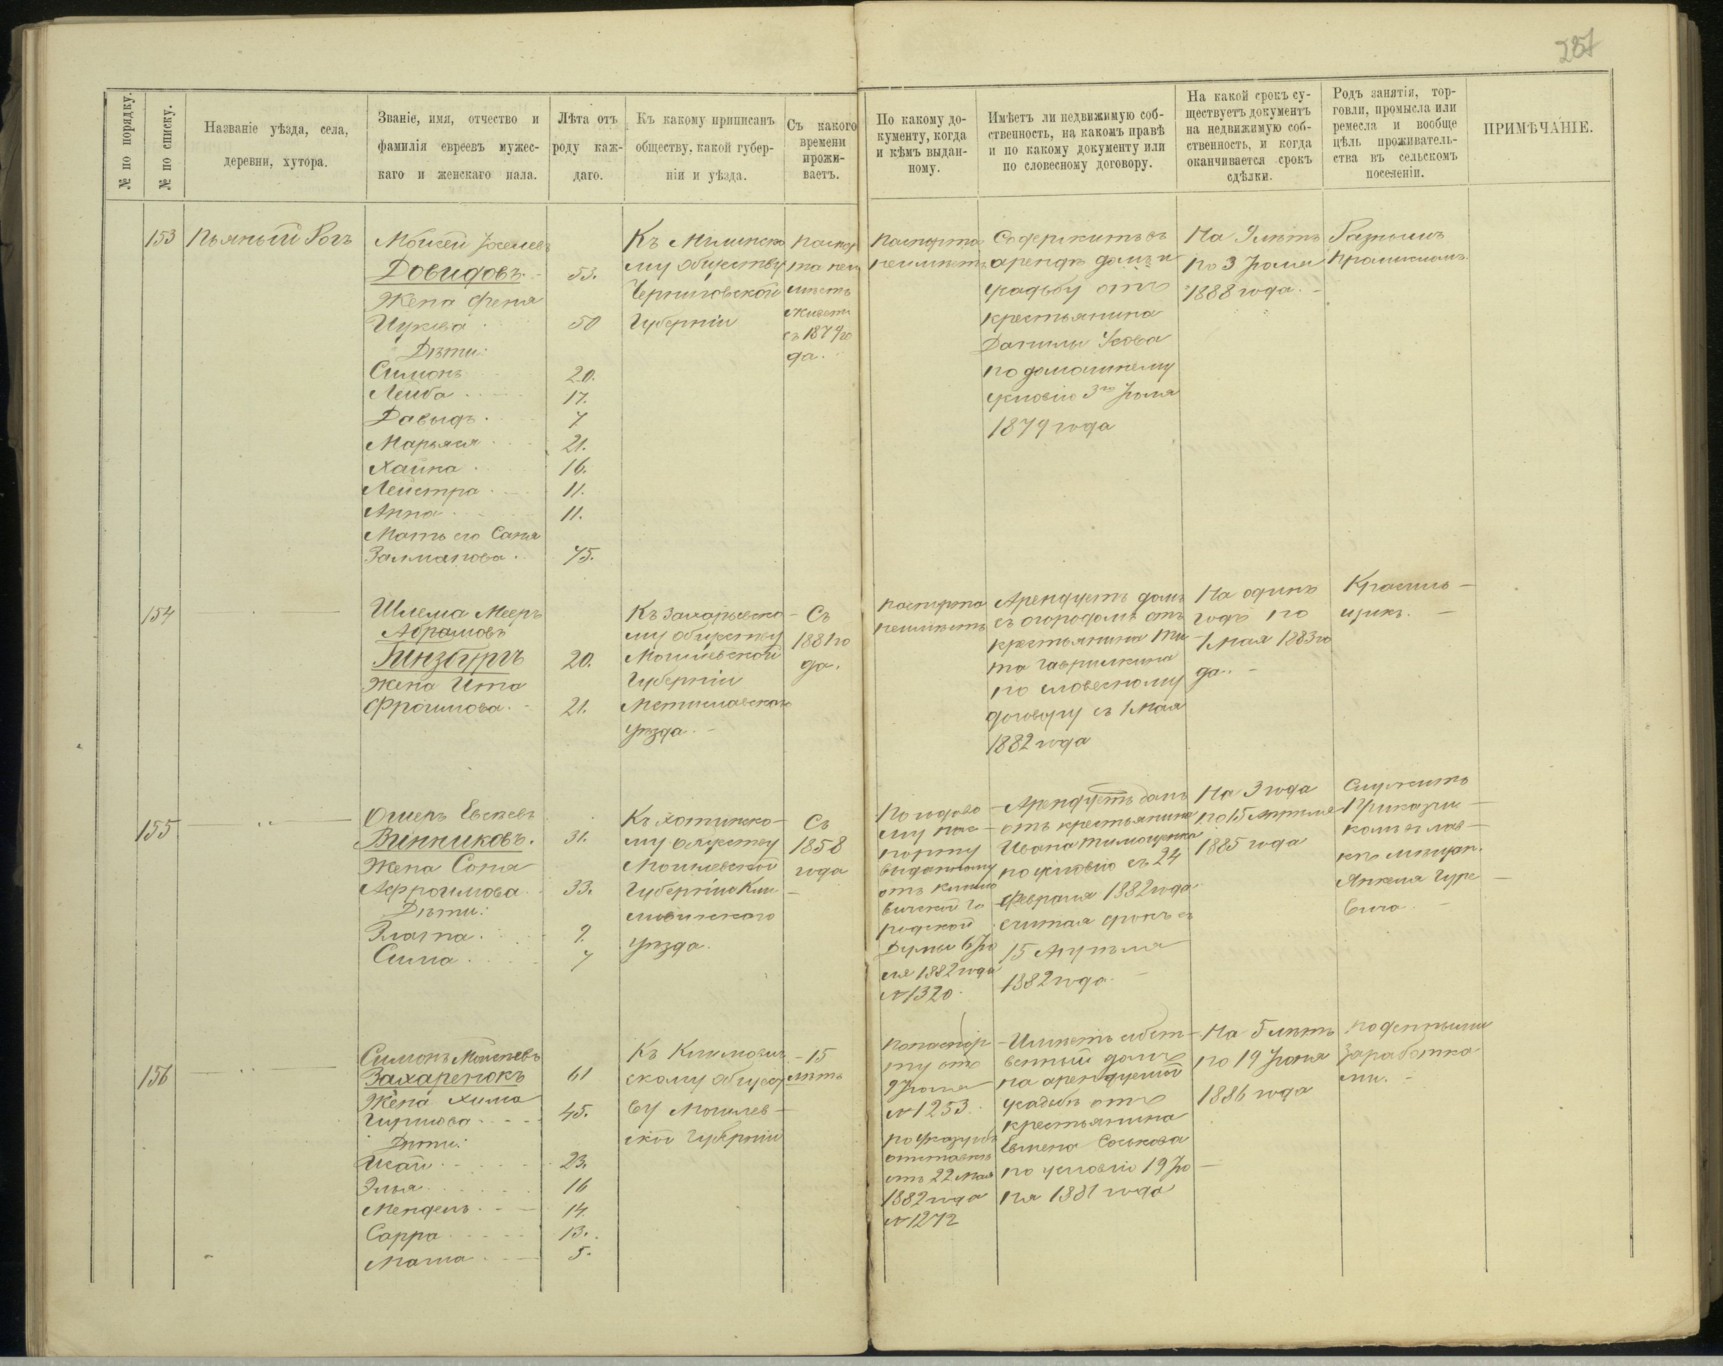 257
№ по порядку.
№ по списку.
Названіе уѣзда, села,
деревни, хутора.
Званіе, имя, отчество и
фамилія евреевъ мужес-
каго и женскаго пала.
Лѣта отъ
роду каж-
даго.
Къ какому приписанъ
обществу, какой губер-
ніи и уѣзда.
Съ какого
времени
прожи-
ваетъ.
По какому до-
кументу, когда
и кѣмъ выдан-
ному.
Имѣетъ ли недвижимую соб-
ственность, на какомъ правѣ
и по какому документу или
по словесному договору.
На какой срокъ су-
ществуетъ документъ
на недвижимую соб-
ственность, и когда
оканчивается срокъ
сдѣлки.
Родъ занятія, тор-
говли, промысла или
ремесла и вообще
цѣль проживатель-
ства въ сельскомъ
поселеніи.
ПРИМѢЧАНІЕ.
153
Пьяный Рогъ
Мойсей
Довидовъ 53.
Жена Феня
50
Дѣти:
Симонъ 20.
Лейба 17.
Давыдъ 7
Марьяся 21.
Хайна 16.
Лейстра 11.
Анна 11.
Мать его Саня
Залманова 75.
Къ Мглинско
му обществу
Черниговской
Губерніи
Паспор
та неи
мѣетъ
живетъ
съ 1879 го
да.
Паспорта
неимѣетъ
Содержитъ въ
арендѣ домъ и
усадьбу отъ
крестьянина
Данилы
по домашнему
условію 3го Іюля
1879 года
На 9 лѣтъ
по 3 Іюля
1888 года.
154
Шлема Мееръ
Абрамовъ
Гинзбургъ 20.
Жена Ита
Фроимова 21.
му обществу
Могилевской
Губерніи
Мстиславскаго
уѣзда
Съ
1881 го
да.
Паспорта
неимѣетъ
Арендуетъ домъ
съ огородомъ отъ
крестьянина Ти
та Гаврилкина
по словесному
договору съ 1 Мая
1882 года
На одинъ
годъ по
1 Мая 1883 го
да.
Красиль
щикъ.
155
Винниковъ. 31.
Жена Соня
Афроимова 33.
Дѣти:
Злата 9.
Сима 7
Къ Хотимско
му обществу
Могилевской
Губерніи Кли
мовичскаго
уѣзда.
Съ
1858
года
По годово
му пас
порту
выданному
отъ Климо
вичской Го
родской
Думы 6 Ію
ля 1882 года
№ 1320.
Арендуетъ домъ
отъ крестьянина
Ивана Тимощенка
по условію съ 24
Февраля 1882 года
считая срокъ съ
15 Апрѣля
1882 года.
На 3 года
по 15 Апрѣля
1885 года
Служитъ
Приказчи
комъ въ лав
кѣ мѣщан.
Анкеля Гуре
вича.
156
Симонъ
Захаренокъ 61
Жена Хима
45.
Дѣти:
Исай 23.
Элья 16
Мендель 14.
Сарра 13.
Маша 5.
Къ Климович
скому общест
ву Могилев
ской Губерніи
15
лѣтъ
По паспор
ту отъ
9 Іюля
№ 1253.
отъ 22 Мая
1882 года
№ 1272
Имѣетъ собст
венный домъ
на арендуемой
усадьбѣ отъ
крестьянина
по условію 19 Ію
ля 1881 года
На 5 лѣтъ
по 19 Іюля
1886 года
Поденными
Заработка
ми.